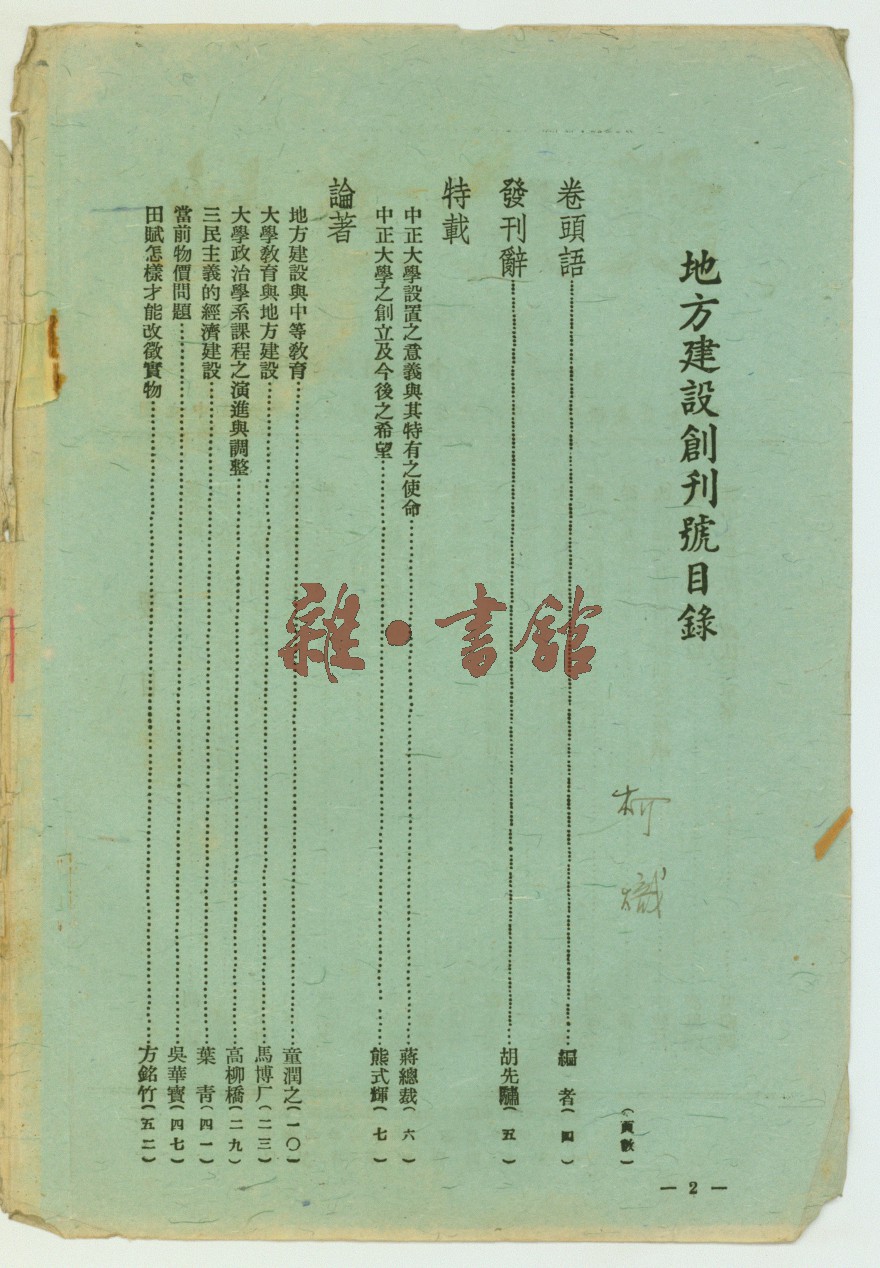 地方建設創刊號目錄
(頁數)
卷頭語……編者(四)
發刊辭……胡先驌(五)
特載
中正大學設置之意義與其特有之使命……蔣總裁(六)
中正大學之創立及今後之希望……熊式輝(七)
論著
地方建設與中等教育……童潤之(一〇)
大學教育與地方建設……馬博厂(二三)
大學政治學系課程之演進與調整……高柳橋(二九)
三民主義的經濟建設……葉青(四一)
當前物價問題……吳華寶(四七)
田賦怎樣才能改徵實物……方銘竹(五二)
— 2 —
雜·書館